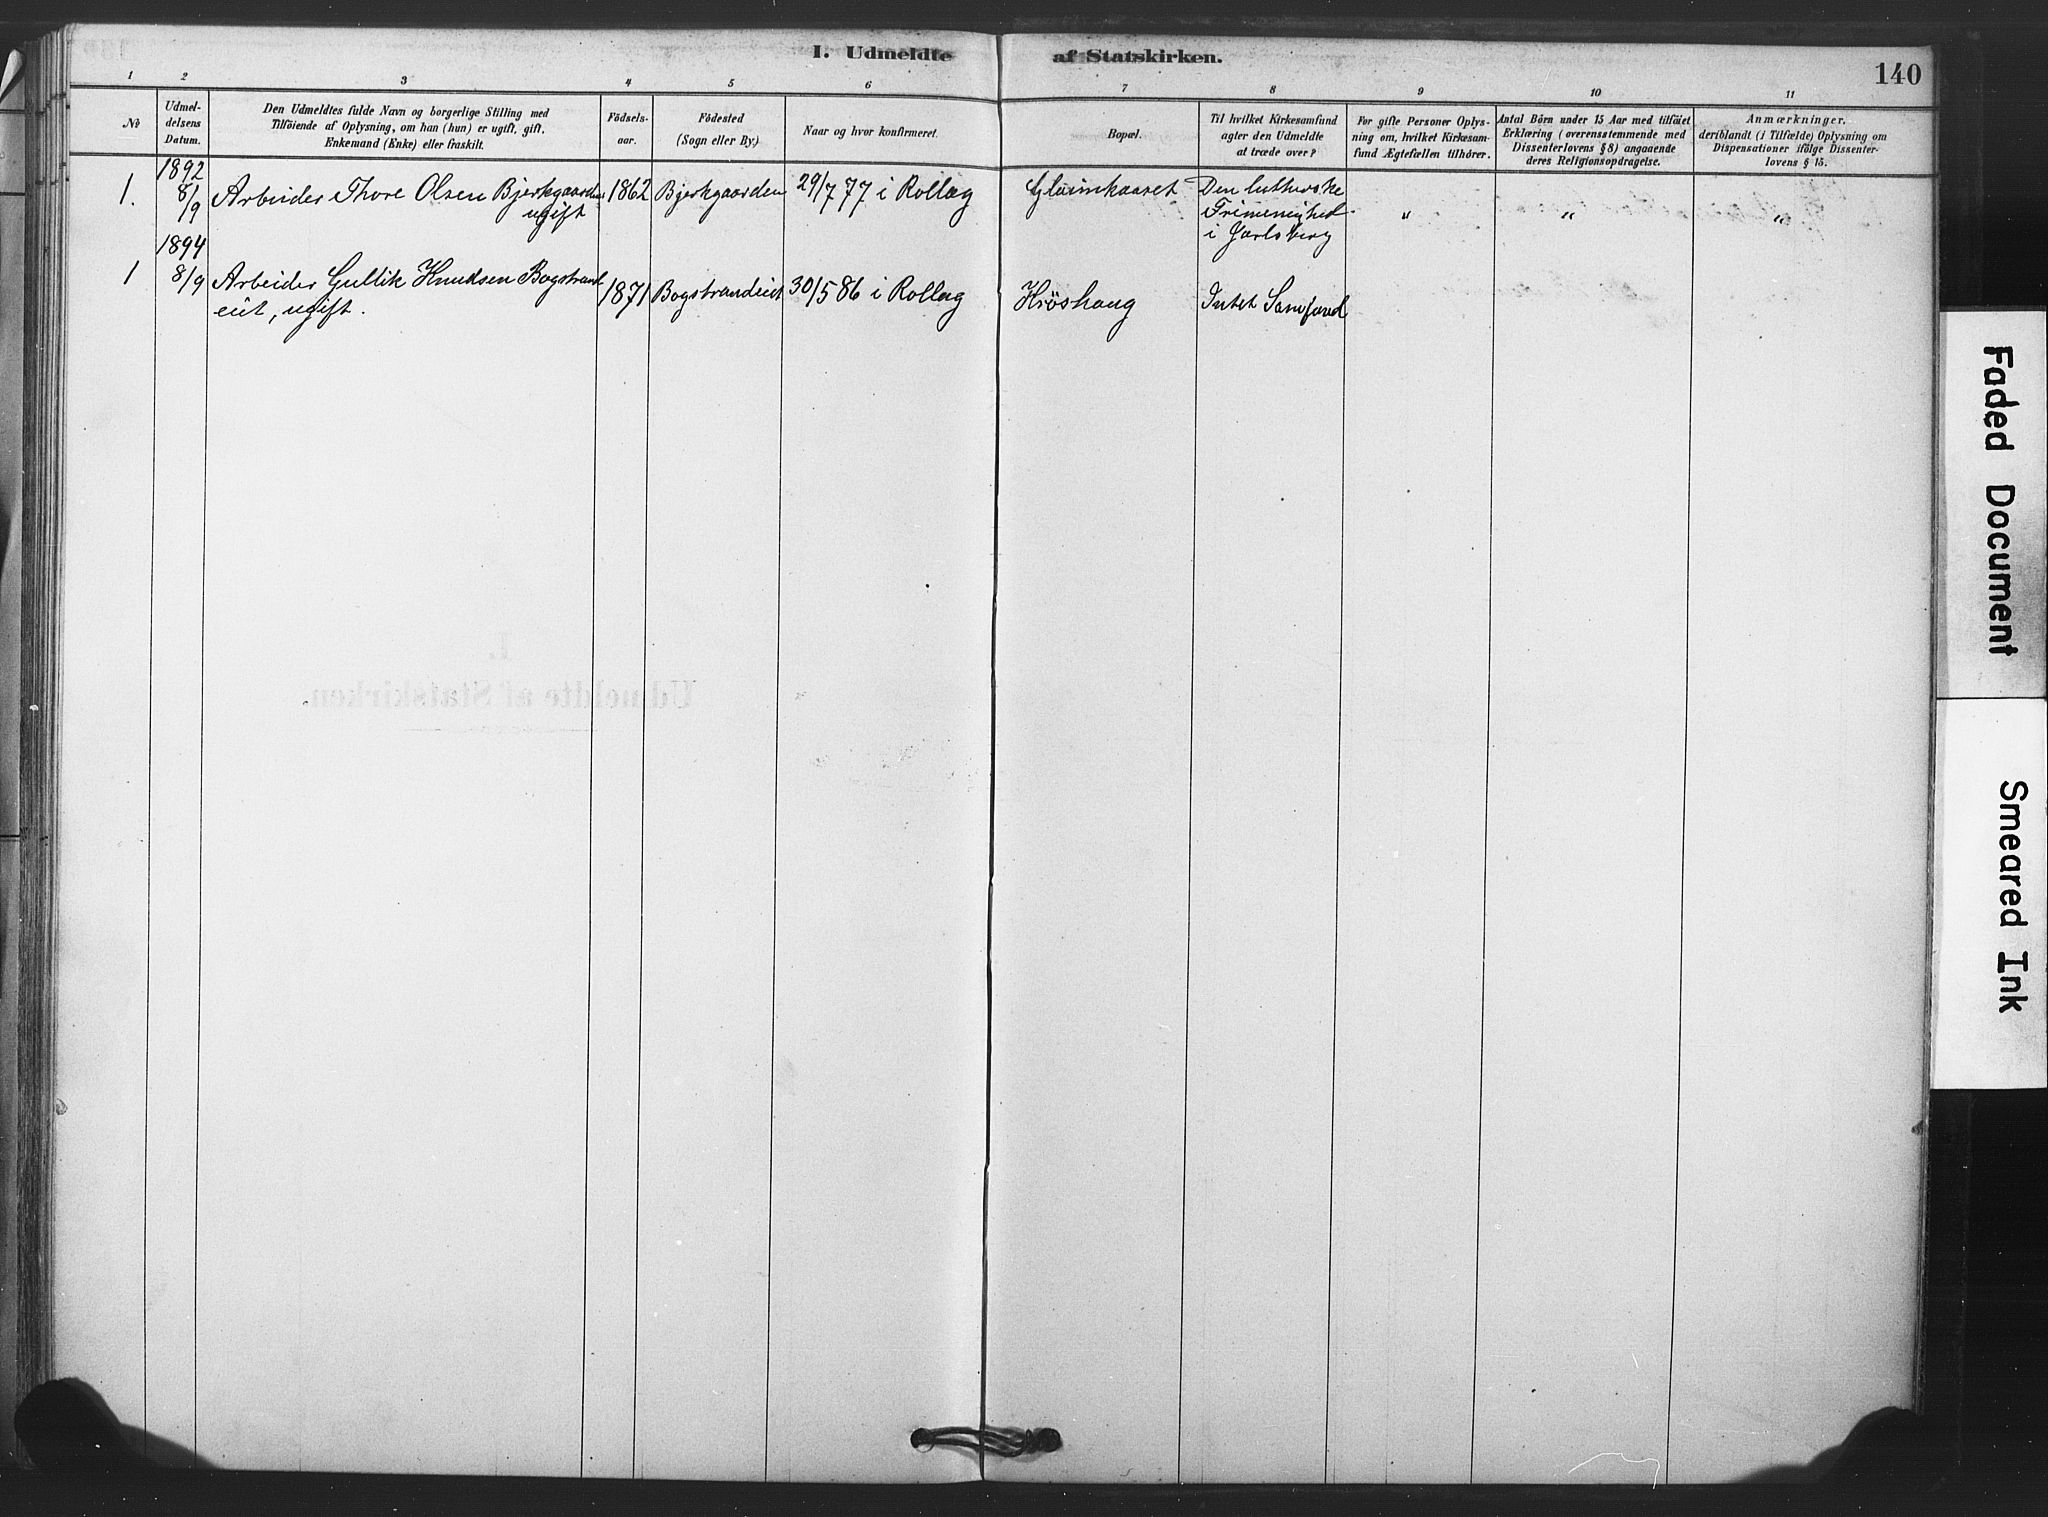 I. Udmeldte af Statskirken.
140
1 2 3 4 5 6 7 8 9 10 11
No
Udmel-
delsens
Datum.
Den Udmeldtes fulde Navn og borgerlige Stilling med
Tilföiende af Oplysning, om han (hun) er ugift, gift,
Enkemand (Enke) eller fraskilt.
Födsels-
aar.
Födested
(Sogn eller By.)
Naar og hvor konfirmeret.
Bopæl.
Til hvilket Kirkesamfund
agter den Udmeldte
at træde over?
For gifte Personer Oplys-
ning om, hvilket Kirkesam-
fund Ægtefællen tilhörer.
Antal Börn under 15 Aar med tilföiet
Erklæring (overensstemmende med
Dissenterlovens § 8) angaaende
deres Religionsopdragelse.
Anmærkninger,
deriblandt (i Tilfælde) Oplysning om
Dispensationer ifölge Dissenter-
lovens § 15.
1892
1. 8/9 Arbeider Thore Olsen Bjerkgaarden 1862 Bjerkgaarden 29/7 77 i Rollag Den lutherske
ugift Frimenighed " " "
i Jarlsberg
1894
1 8/9 Arbeider Gullik Knudsen Bogstrand 1871 Bogstrandeiet 30/5 86 i Rollag Kröshaug Intet Samfund
eiet, ugift.
I.
Udmeldte af Statskirken.
Faded Document
Smeared Ink